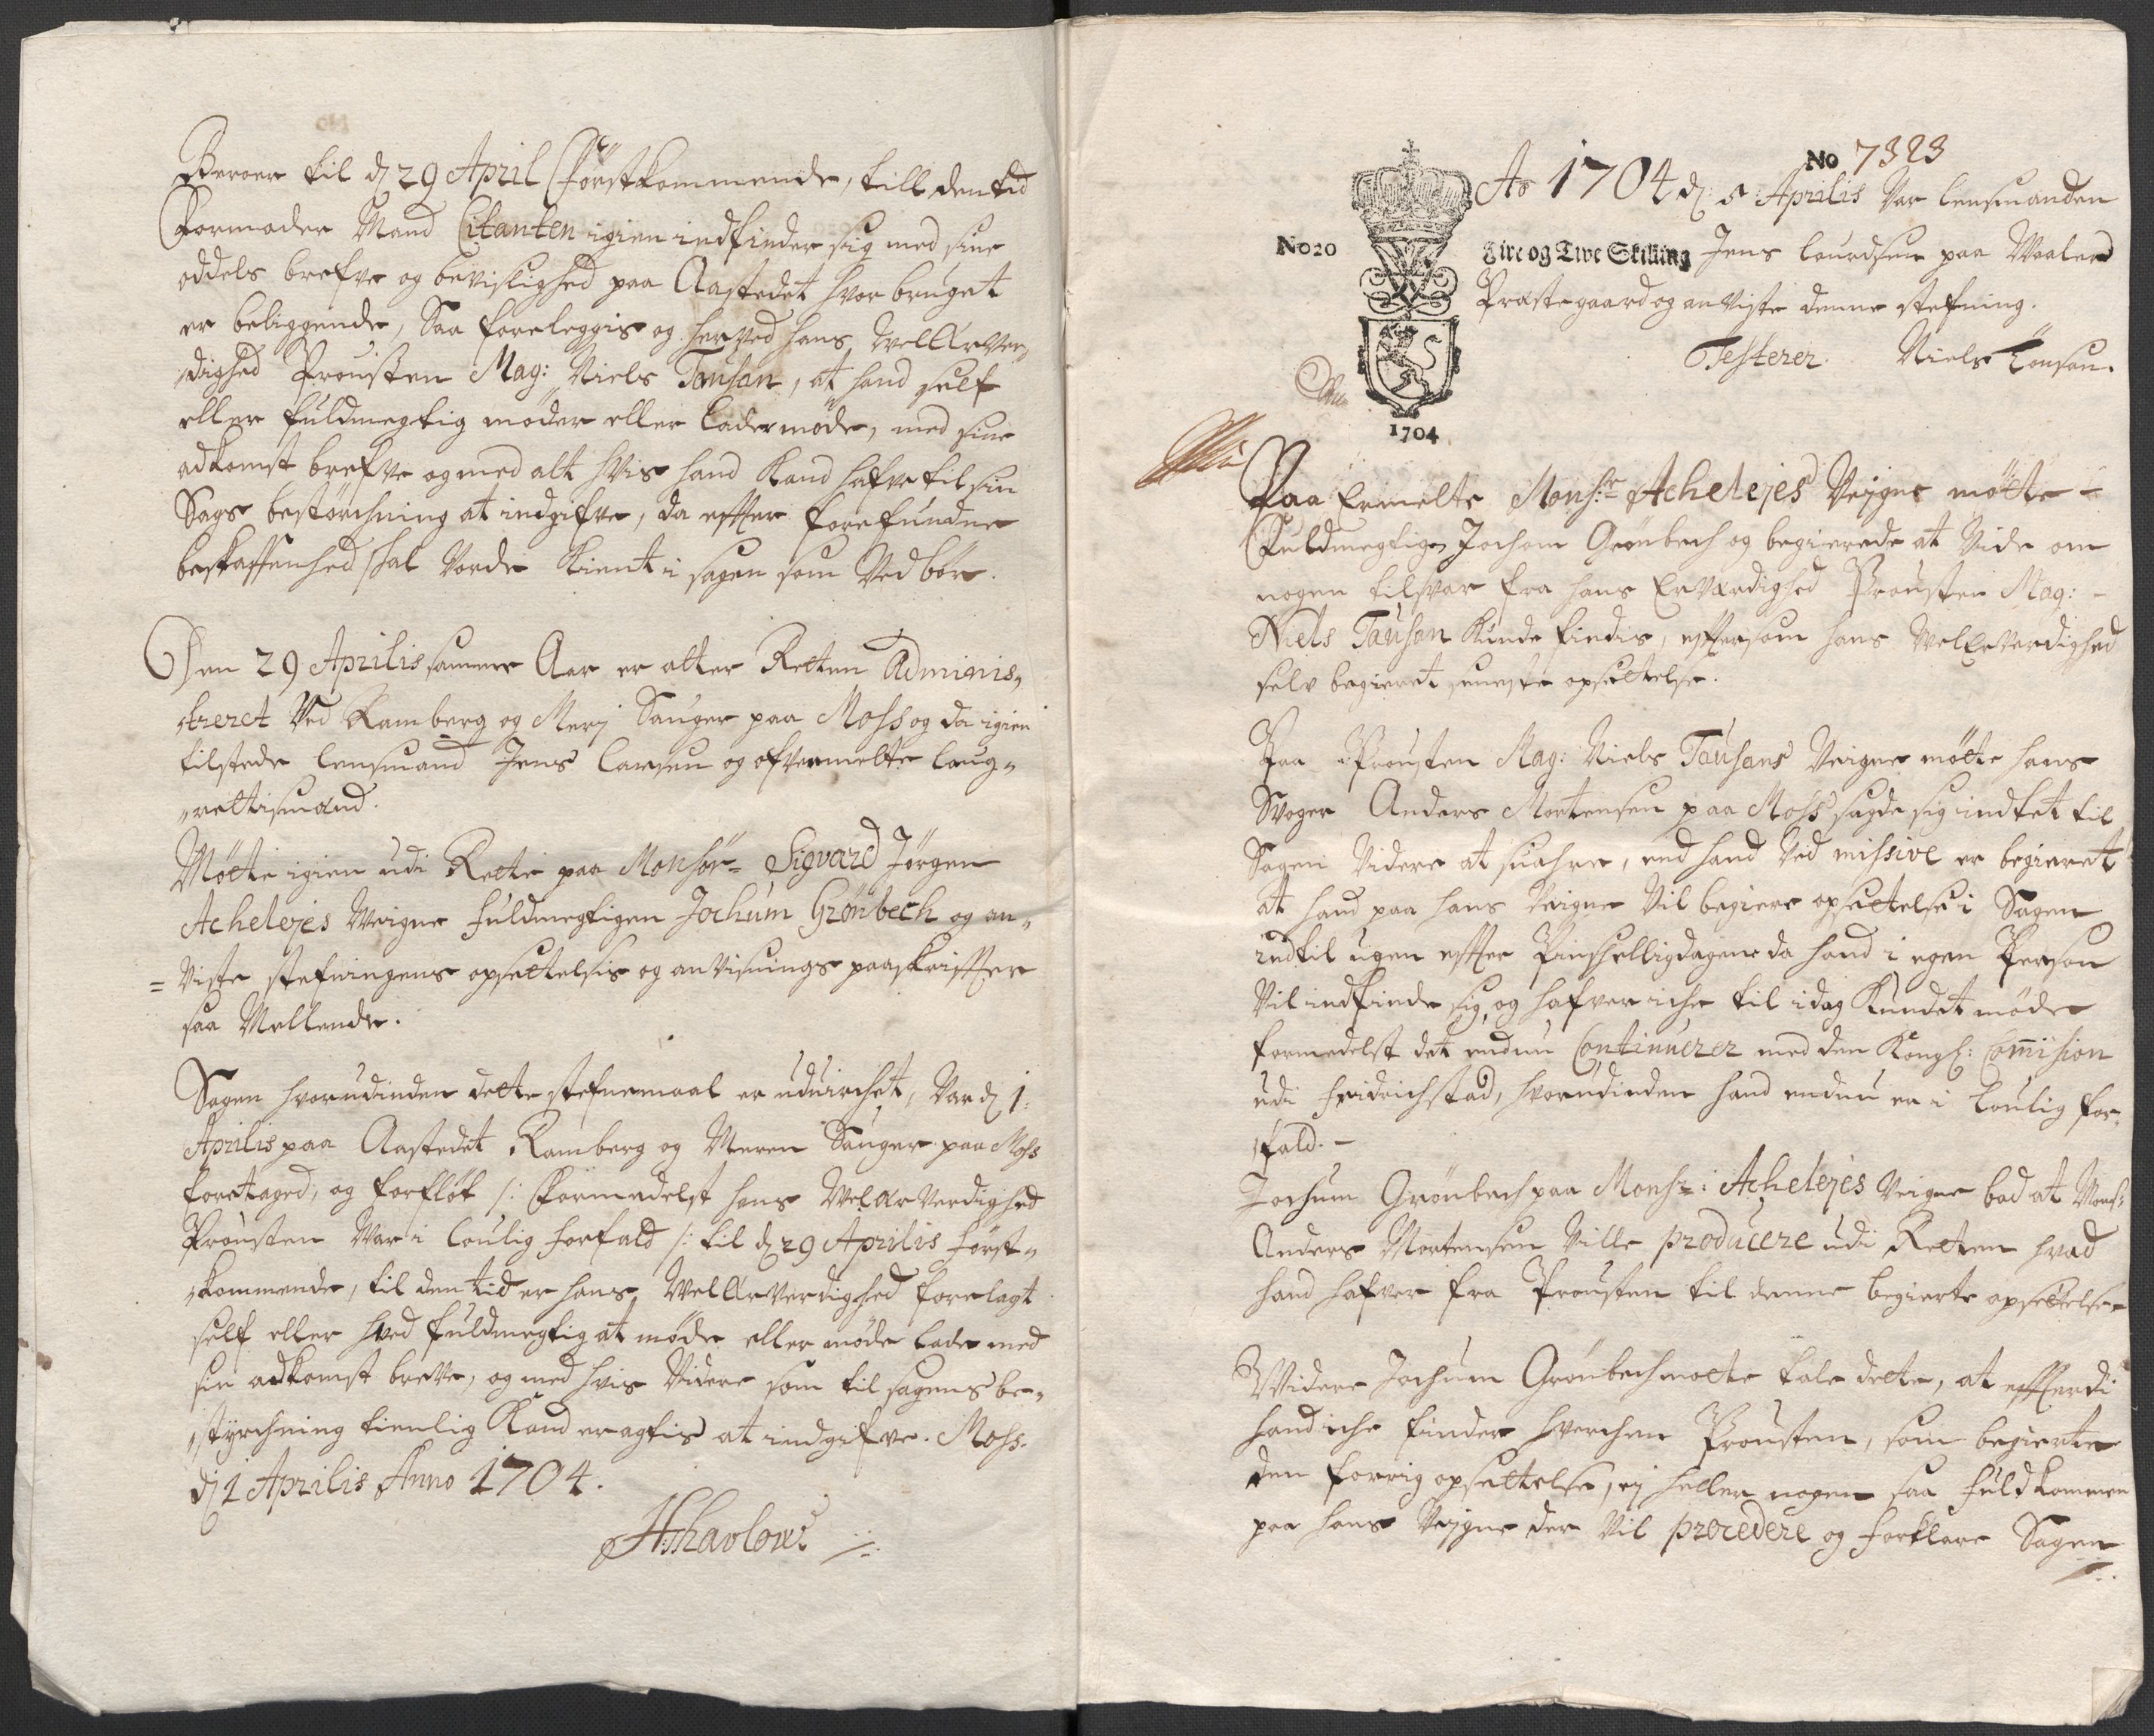 Beroer til d 29 April Førstkommende, till den tid
Formoder Mand Citanten igien indfinder sig med sine
oddels brefve og bevislighed paa Aastedet hvor bruget
er beliggende, Saa foreleggis og herved hans WelErver„
„dighed Prousten Mag: Niels Tausan, at hand self
eller fuldmegtig møder eller Lader møde, med sine
adkomst brefve og med alt hvis hand Kand hafve til sin
Sags bestørchning at indgifve, da effter forefundne
beskaffenhed skal Vorde Kient i sagen som Ved bør.
Den 29 Aprilis samme Aar er atter Retten Adminis„
„treret Ved Ramberg og Merj Sauger paa Moss og da igien
tilstede lensmand Jens Larsen og ofvermelte Laug„
„rettismænd.
Møtte igien udi Rette paa Monsør= Sigvard Jörgen
Achelejes Weigne fuldmegtigen Jochum Grönbech og an„
= Viste stefningens opsettelsis og anvisnings paaskriffter
saa Mellende.
Sagen hvorudinden dette stefnemaal er uduirchet, Var d 1:
Aprilis paa Aastedet Ramberg og Meren Sauger paa Moss
foretaged, og forfløt /: Formedelst hans WelErverdighed
Prousten War i Loulig forfald /: til d 29 Aprilis først„
„kommende, til den tid er hans WelErverdighed forelagt
self eller hved fuldmegtig at møde eller møde lade med
sin adkomst breve, og med hvis Videre som til sagens be„
„styrchning tienlig Kand eragtis at indgifve. Moss.
d 1 Aprilis Anno 1704.
No 7323
Ao 1704 d: 5 Aprilis Var lensmanden
No 20
Fire og Tive Skilling Jens Lauridsen paa Waaler
Præstegaard og anviste denne stefning.
Testerer Niels Tønsen.
1704
Paa Ermelte Monsr Achelejes Vejgne møtte –
Fuldmegtigen Jochom Grønbech og begierede at Vide om
nogen tilsvar fra hans Erværdighed Prousten Mag: –
Niels Tausan Kunde findis, effterson hans WelErverdighed
selv begieret seneste opsettelse.
Paa Prousten Mag: Niels Tausans Veigne møtte hans
Svoger Anders Mortensen paa Moss sagde sig indtet til
Sagen Videre at suahre, end hand Ved missive er begieret
at hand paa hans Veigne Vil begiere opsettelse i Sagen
indtil ugen effter Pinshelligdagene da hand i egen Person
Vil indfinde sig, og hafver iche til idag Kundet møde
formedelst det endnu Continuerer med den Kongl: Comission
udi Fridrichstad, hvorudinden hand endnu er i Loulig for„
„fald. –
Jochum Grönbech paa Monsr: Achelejes Veigne bad at Monsr
Anders Mortensen Ville producere udi Retten hvad
hand hafver fra Prousten til denne begierte opsettelse
Widere Jochum Grönbech motte tale dette, at effterdi
hand iche finder hverchen Prousten, som begierte
den forrig opsettelse, ej heller nogen saa fuldkommen
paa hans Vejgne der Vil procedere og forklare Sagen